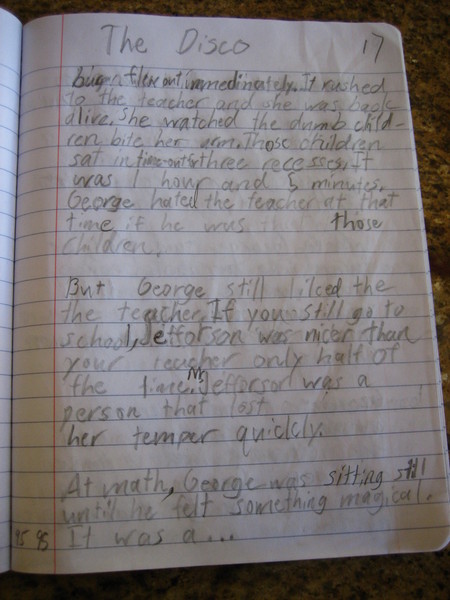 The Disco 17
flew out immedinately. It rushed
to the teacher and she was back
alive. She watched the dumb child-
ren bite her arm. Those children
sat in time-out for three recesses. It
was 1 hour and 5 minutes.
George hated the teacher at that
time if he was those
children.
But George still liked the
the teacher. If you still go to
school, Jefforson was nicer than
your teacher only half of
the time. Jefforson was a
person that lost
her temper quickly.
At math, George was sitting still
until he felt something magical.
It was a...